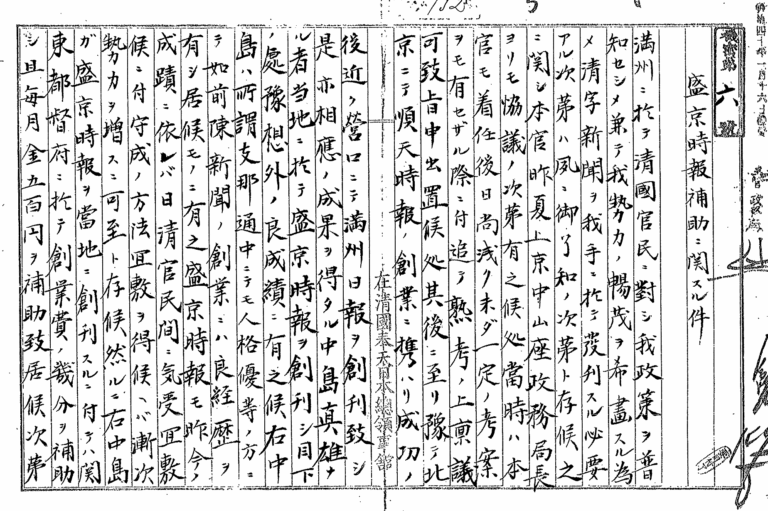 機密第六號
明治四十年一月十六日
政務局
盛京時報補助ニ関スル件
満州ニ於テ清國官民ニ對シ我政策ヲ普
知セシメ兼テ我勢力ノ暢茂ヲ希畫スル為
メ清字新聞ヲ我手ニ於テ發刊スル必要
アル次第ハ夙ニ御了知ノ次第ト存候之
ニ関シ本官昨夏上京中山座政務局長
ヨリモ恊議ノ次第有之候処當時ハ本
官モ着任後日尚浅ク未ダ一定ノ考案
ヲモ有セザル際ニ付追テ熟考ノ上稟議
可致旨申出置候処其後ニ至リ豫テ北
京ニテ順天時報ノ創業ニ携ハリ成功ノ
在清國奉天日本總領事館
後近ク營口ニテ満州日報ヲ創刊致シ
是亦相應ノ成果ヲ得タル中島真雄ナ
ル者当地ニ於テ盛京時報ヲ創刊シ目下
ノ處豫想外ノ良成績ニ有之候右中
島ハ所謂支那通中ニテモ人格優等ノ方ニ
テ如前陳新聞ノ創業ニハ良経歴ヲ
有シ居候モノニ有之盛京時報モ昨今ノ
成蹟ニ依レバ日清官民間ニ気受宜敷
候ニ付守成ノ方法宜敷ヲ得候ハバ漸次
勢力ヲ増スニ可至ト存候然ルニ右中島
ガ盛京時報ヲ當地ニ創刊スルニ付テハ関
東都督府ニ於テ創業費ノ幾分ヲ補助
シ且毎月金五百円ヲ補助致居候次第